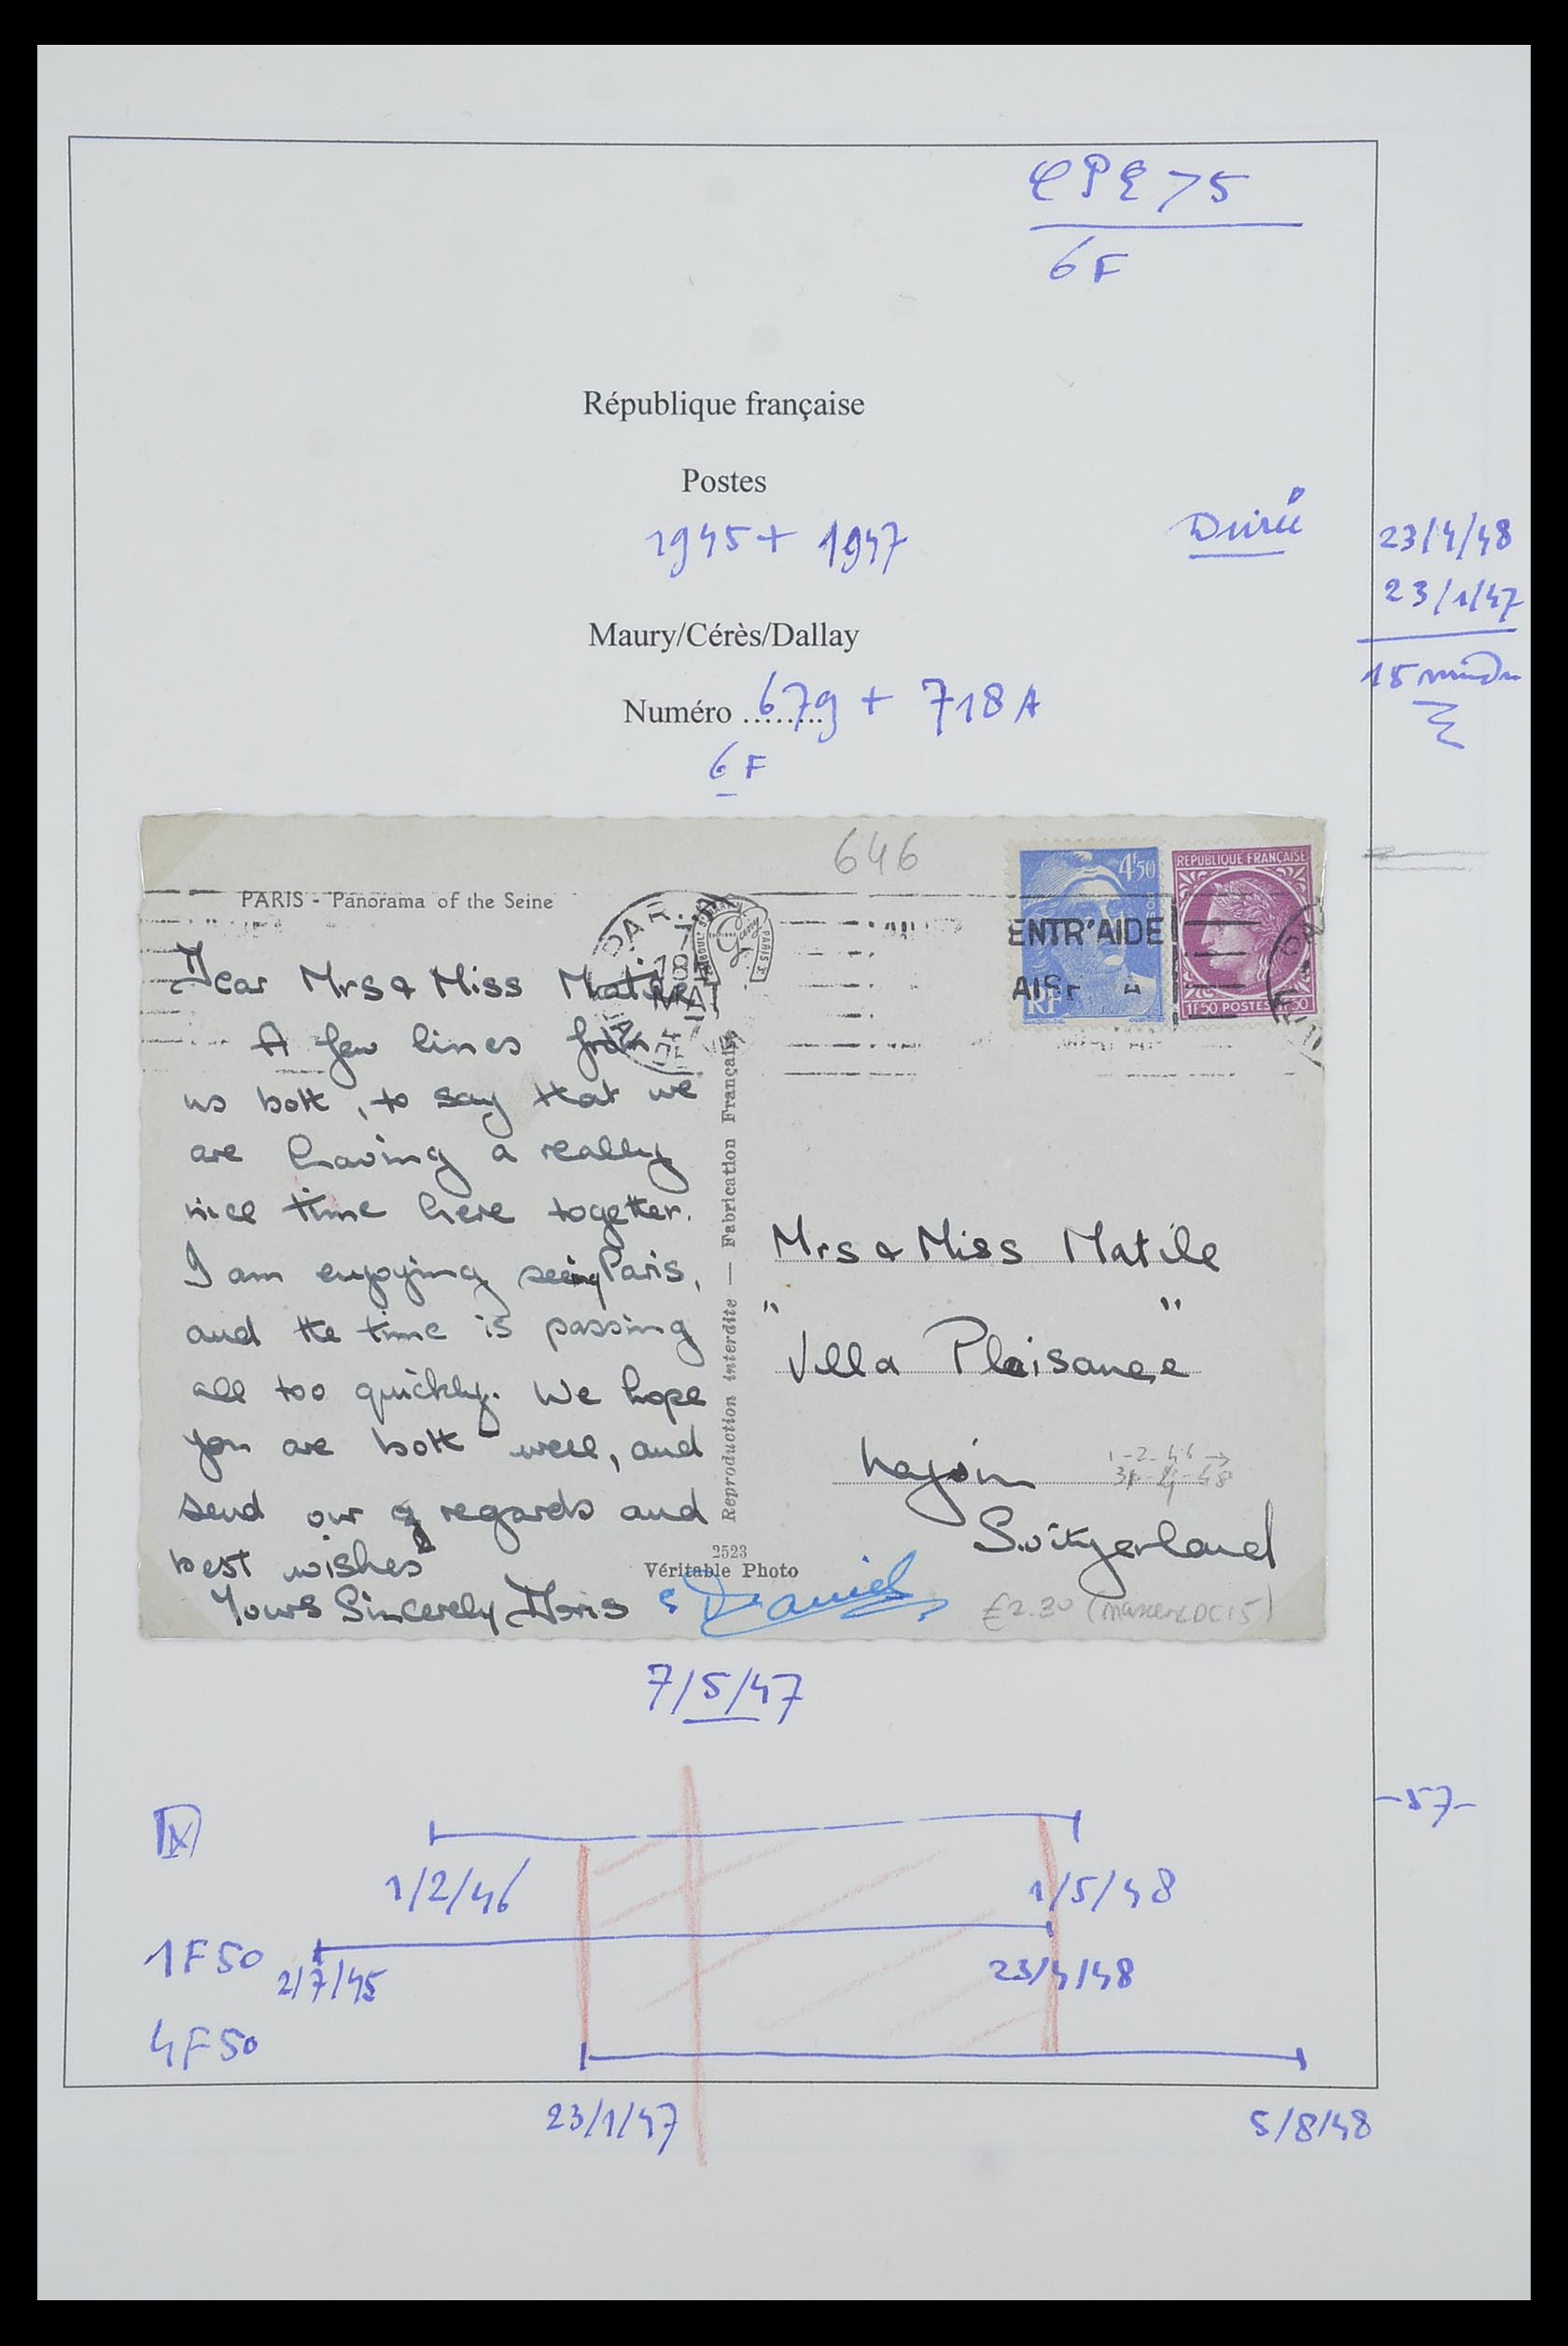 CPE 75
6F
République française
Postes
1945 + 1947
Durée
23/4/48
23/1/47
15
Maury/Cérès/Dallay
Numéro ........ 679 + 718A
6F
646
PARIS - Panorama of the Seine
4F50
RF
REPUBLIQUE FRANÇAISE
1F50 POSTES
ENTR'AIDE
Dear Mrs & Miss Matile
A few lines from
us both, to say that we
are having a really
nice time here together.
I am enjoying seeing Paris,
and the time is passing
all too quickly. We hope
you are both well, and
send our regards and
best wishes
Yours Sincerely Doris & Daniel
Reproduction interdite — Fabrication Française
2523
Véritable Photo
Mrs & Miss Matile
" Villa Plaisance "
Switzerland
1-2-46 →
£2.30
7/5/47
-57-
1/2/46
1/5/48
1F50
2/7/45
23/4/48
4F50
23/1/47
5/8/48